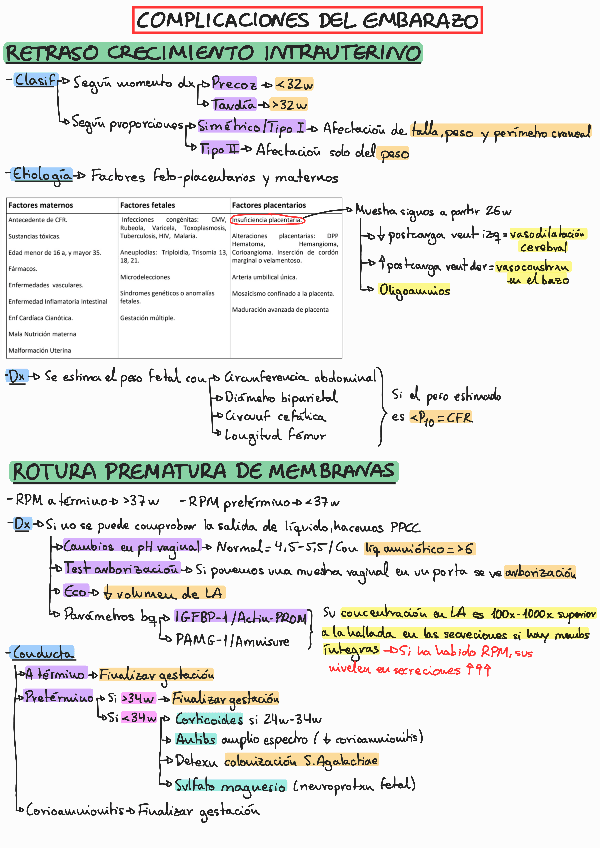 COMPLICACIONES DEL EMBARAZO
RETRASO CRECIMIENTO INTRAUTERINO
- Clasif → Según momento dx → Precoz → <32w
→ Tardía → >32w
→ Según proporciones → Simétrico/Tipo I → Afectación de talla, peso y perímetro craneal
→ Tipo II → Afectación solo del peso
- Etiología → Factores feto-placentarios y maternos
Factores maternos
Antecedente de CFR.
Sustancias tóxicas.
Edad menor de 16 a, y mayor 35.
Fármacos.
Enfermedades vasculares.
Enfermedad Inflamatoria Intestinal
Enf Cardíaca Cianótica.
Mala Nutrición materna
Malformación Uterina
Factores fetales
Infecciones congénitas: CMV,
Rubeola, Varicela, Toxoplasmosis,
Tuberculosis, HIV, Malaria.
Aneuplodías: Triploidia, Trisomia 13,
18, 21.
Microdelecciones
Síndromes genéticos o anomalías
fetales.
Gestación múltiple.
Factores placentarios
Insuficiencia placentaria.
Alteraciones placentarias: DPP
Hematoma, Hemangioma,
Corioangioma. Inserción de cordón
marginal o velamentoso.
Arteria umbilical única.
Mosaicismo confinado a la placenta.
Maduración avanzada de placenta
→ Muestra signos a partir 26w
→ ↓ postcarga vent izq = vasodilatación
cerebral
→ ↑ postcarga vent der = vasoconstrxn
en el bazo
→ Oligoamnios
- Dx → Se estima el peso fetal con → Circunferencia abdominal
→ Diámetro biparietal
→ Circunf cefálica
→ Longitud fémur
Si el peso estimado
es <P10 = CFR
ROTURA PREMATURA DE MEMBRANAS
- RPM a término → >37w - RPM pretérmino → <37w
- Dx → Si no se puede comprobar la salida de líquido, hacemos PPCC
→ Cambios en pH vaginal → Normal = 4,5-5,5 / Con liq amniótico = >6
→ Test arborización → Si ponemos una muestra vaginal en un porta se ve arborización
→ Eco → ↓ volumen de LA
→ Parámetros bq → IGFBP-1/Actim-PROM
→ PAMG-1/Amnisure
Su concentración en LA es 100x-1000x superior
a la hallada en las secreciones si hay membs
íntegras → Si ha habido RPM, sus
niveles en secreciones ↑↑↑
- Conducta
→ A término → Finalizar gestación
→ Pretérmino → Si >34w → Finalizar gestación
→ Si <34w → Corticoides si 24w-34w
→ Antibs amplio espectro (↓ corioamnionitis)
→ Detexn colonización S. Agalactiae
→ Sulfato magnesio (neuroprotxn fetal)
→ Corioamnionitis → Finalizar gestación